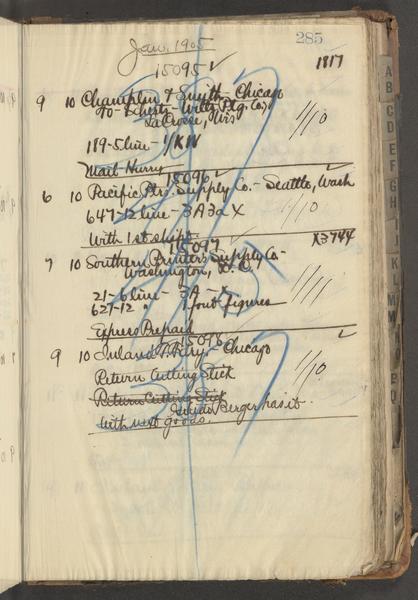 Jan. 1905
285
15095 ✓
1817
9 10 Champlin & Smith - Chicago
To - Liesti - Witt Ptg. Co.,
LaCrosse, Wis
1/10
189-5 line -
Mail Hurry
15096 ✓
6 10 Pacific Ptrs. Supply Co. - Seattle, Wash
647-12 line - 3A 3a X
1/10
With 1st shipt
15097
X3744
7 10 Southern Printers Supply Co -
Washington, D.C.
21-6 line - 3A - X
627-12 " 1 font figures
1/11
Express Prepaid
15098
9 10 Inland T. Fdry. Chicago
Return Cutting Stick
1/10
Return Cutting Stick
Snyder Berger has it
with next goods.
A
B
C
D
E
F
G
H
I
J
K
L
M